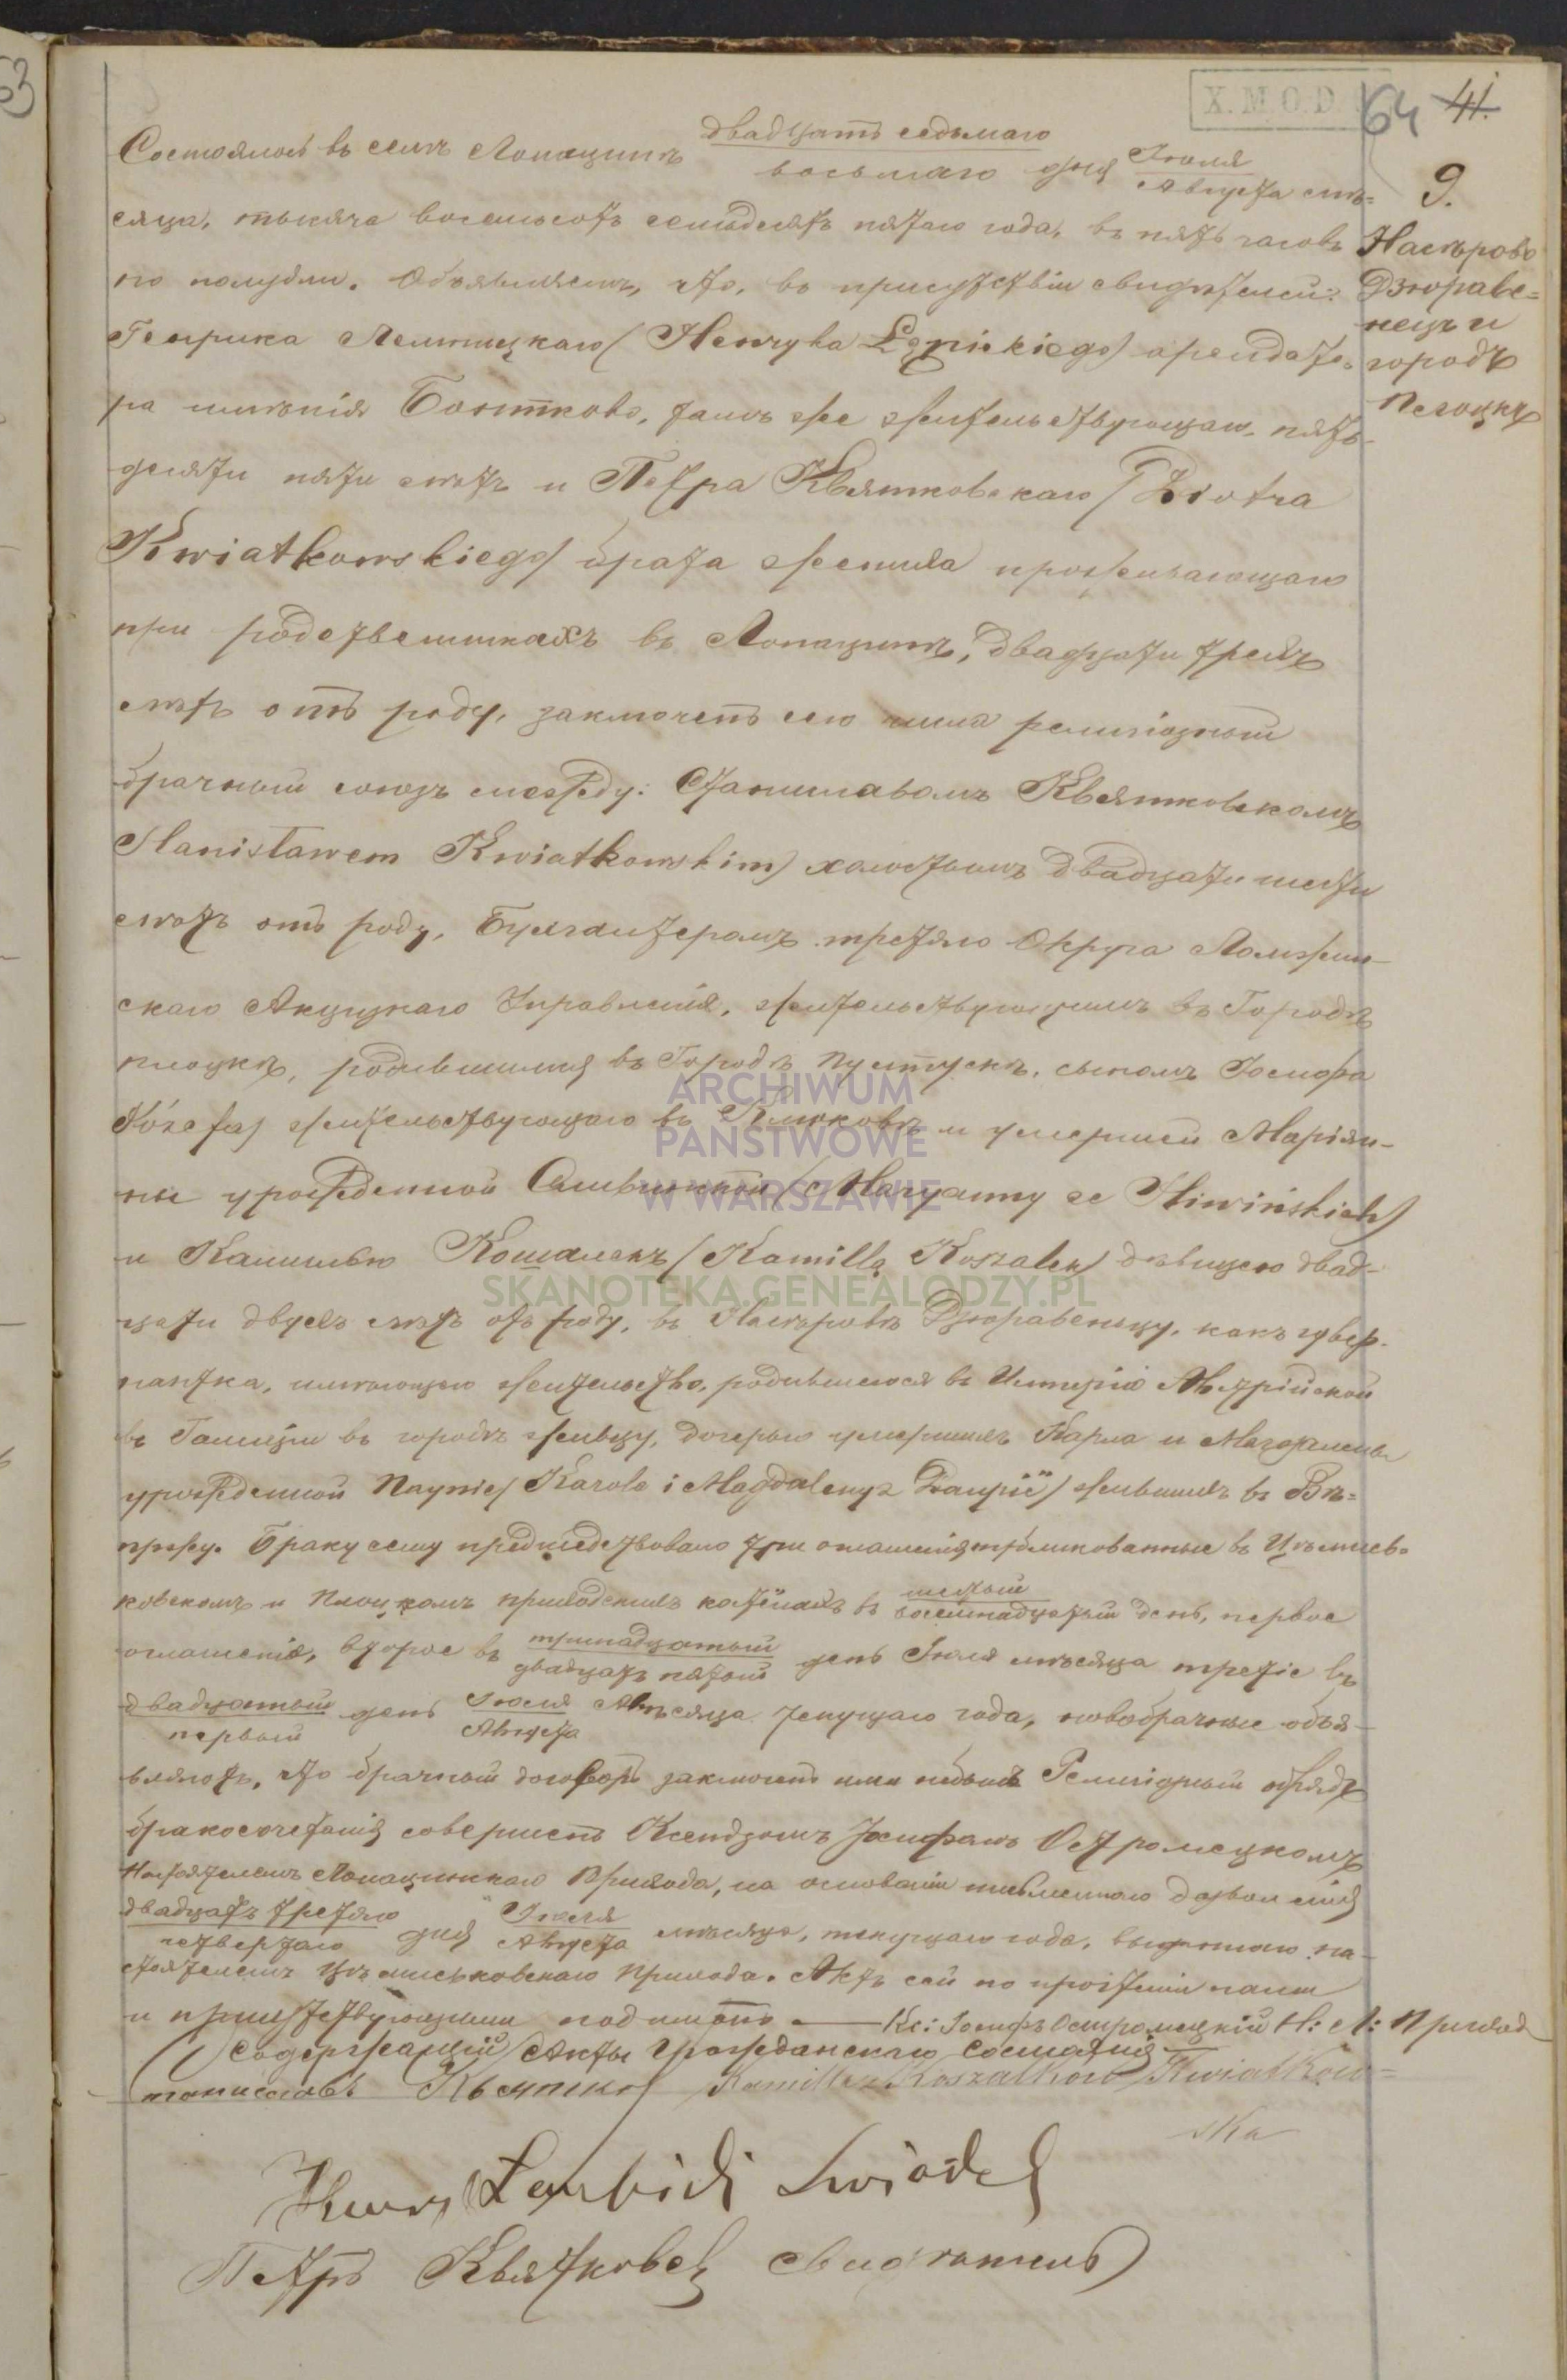 63
X.M.O.D.
64 41.
Состоялось въ селѣ Лопацинѣ двадцать седьмаго
восьмаго дня Іюля
Августа мѣ=
сяца, тысяча восемьсотъ семьдесятъ пятаго года, въ пять часовъ
по полудни. Объявляемъ, что, въ присутствіи свидѣтелей:
Генрика (Henryka Łępickiego) арендато-
ра имѣнія тамъ же жительствующаго, пять-
десяти пяти лѣтъ и Петра Квятковскаго (Piotra
Kwiatkowskiego) брата жениха проживающаго
при родственникахъ въ Лопацинѣ, двадцати трехъ
лѣтъ отъ роду, заключенъ сего числа религіозный
брачный союзъ между: Станиславомъ Квятковскимъ
Stanisławem Kwiatkowskim) холостымъ двадцати шести
лѣтъ отъ роду, Бухгалтеромъ третяго Округа Ломжин-
скаго Акцизнаго Управленія, жительствующимъ въ Городѣ
Плоцкѣ, родившимся въ Городѣ Пултускѣ, сыномъ Іосифа
Józefa) жительствующаго въ и умершей Маріян-
ны урожденной Сливинской (Maryanny ze Sliwińskich)
и Камиллою Кошалекъ (Kamillą Koszalek) дѣвицею двад-
цати двухъ лѣтъ отъ роду, въ Насѣровѣ Дзюравенцу, какъ гувер-
нантка, имѣющею жительство, родившеюся въ Имперіи Австрійской
въ Галиціи въ городѣ Живцу, дочерью умершихъ Карла и Магдалены
урожденной (Karola i Magdaleny z жившихъ въ Вѣ=
Браку сему предшествовало три оглашенія публикованные въ Цѣмнев-
ковскомъ и Плоцкомъ приходскихъ костёлахъ въ шестый
восемнадцатый день, первое
оглашеніе, второе въ тринадцатый
двадцать пятый день Іюля мѣсяца третіе въ
двадцатый
первый день Іюля
Августа Мѣсяца текущаго года, новобрачные объя-
вляютъ, что брачный договоръ заключенъ ими небылъ Религіозный обрядъ
бракосочетанія совершенъ Ксендзомъ Іосифомъ Остромецкимъ
Настоятелемъ Лопацинскаго Прихода, на основаніи письменнаго дозволенія
двадцать третяго
четвертаго дня Іюля
Августа мѣсяца, текущаго года, выданнаго на-
стоятелемъ Цѣмневковскаго Прихода. Актъ сей по прочтеніи нами
и присутствующими подписанъ. — Кс: Іосифъ Остромецкій Н: Л: Приход
Содержащій Акты Гражданскаго Состоянія
Станиславъ Квятков Kamilla z Koszalków Kwiatkow=
ska
Świadek
Петръ Квятковск свидѣтель
9.
Насѣрово
Дзюраве=
нецъ и
городъ
Плоцкъ
ARCHIWUM
PAŃSTWOWE
W WARSZAWIE
SKANOTEKA.GENEALODZY.PL